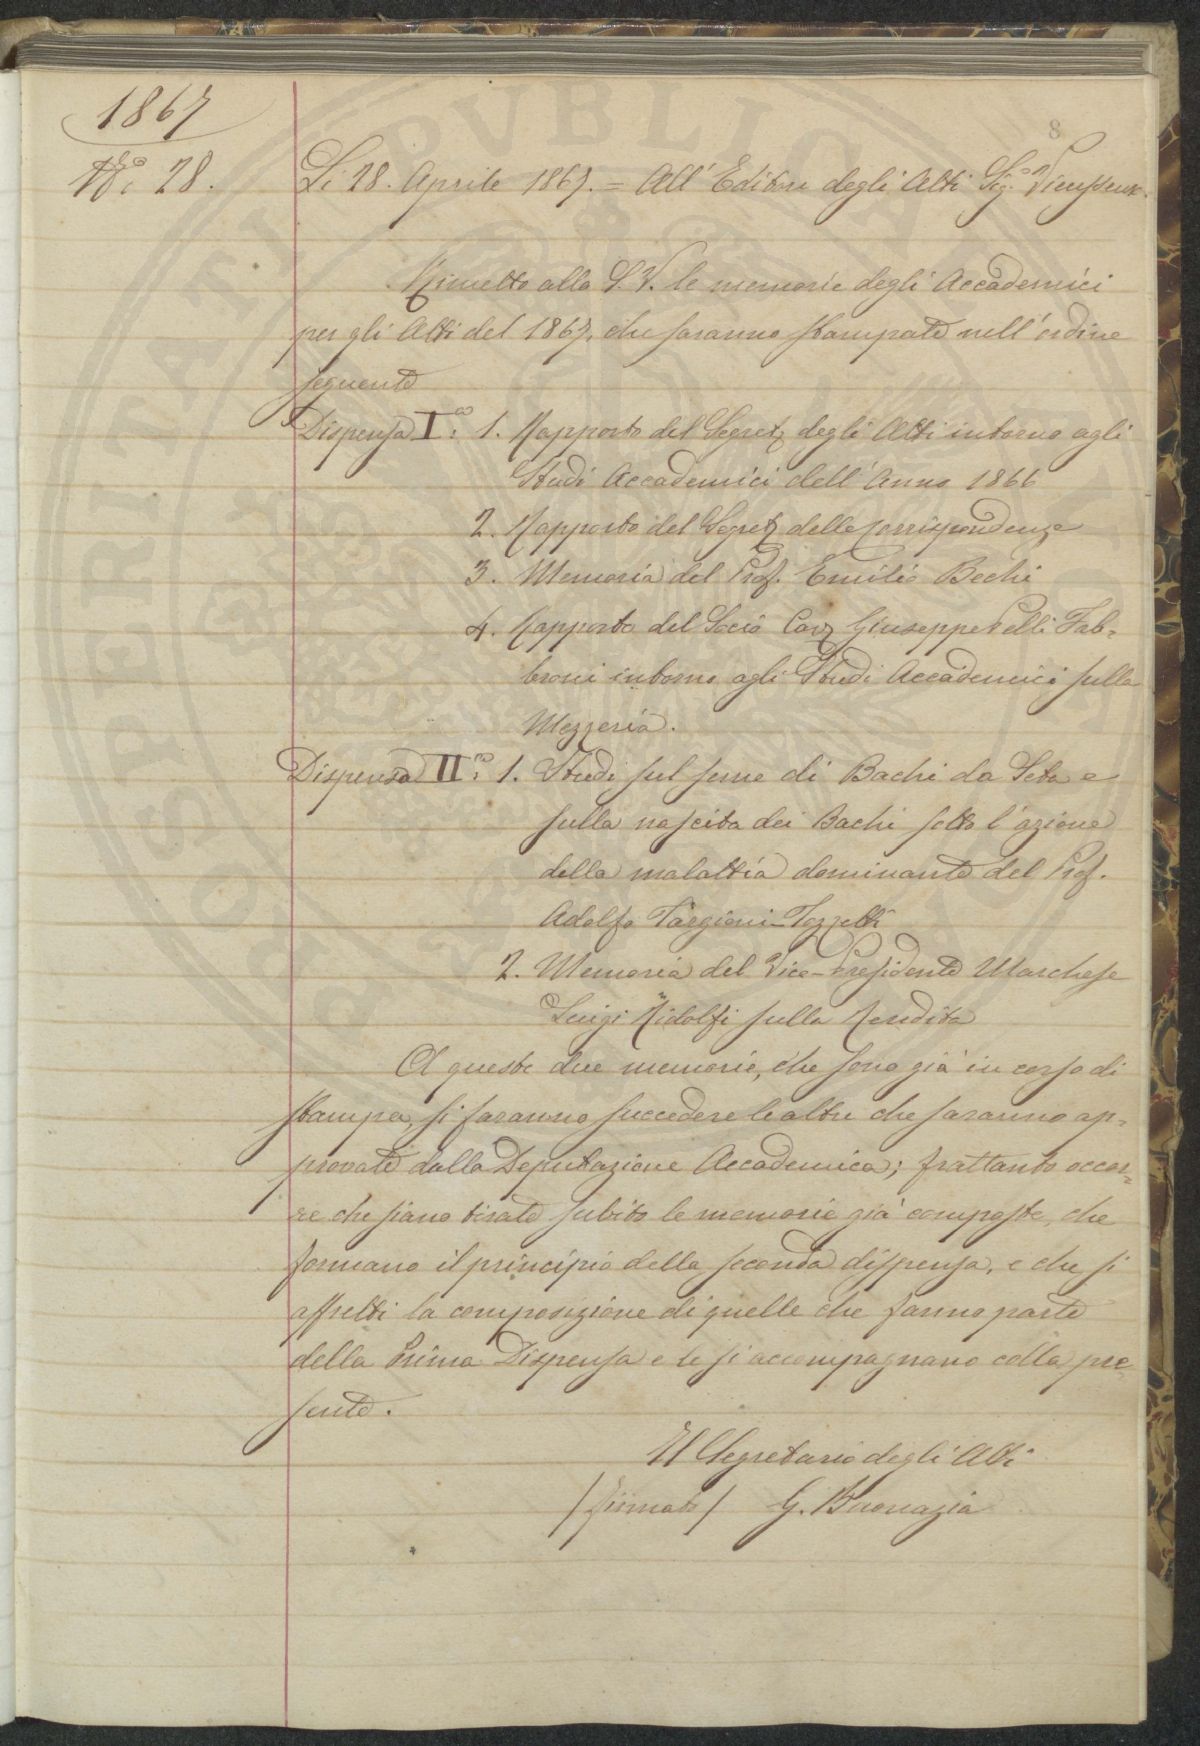 8
1867
N.° 28.
Li 28. Aprile 1867. = All' Editore degli Atti Sig.r Vieusseux.
Rimetto alla S.V. le memorie degli Accademici
per gli Atti del 1867, che saranno stampate nell'ordine
seguente
Dispensa Iª: 1. Rapporto del Segret. degli Atti intorno agli
Studi Accademici dell'Anno 1866
2. Rapporto del Segret. delle Corrispondenze
3. Memoria del Prof. Emilio Bechi
4. Rapporto del Socio Cav. Giuseppe Pelli Fab-
broni intorno agli Studi Accademici sulla
Mezzeria.
Dispensa IIª: 1. Studi sul seme di Bachi da Seta e
sulla nascita dei Bachi sotto l'azione
della malattia dominante del Prof.
Adolfo Targioni-Tozzetti
2. Memoria del Vice-Presidente Marchese
Luigi Ridolfi sulla Rendita
A queste due memorie, che sono già in corso di
stampa, si faranno succedere le altre che saranno ap-
provate dalla Deputazione Accademica; frattanto occor-
re che siano tirate subito le memorie già composte, che
formano il principio della seconda dispensa, e che si
affretti la composizione di quelle che fanno parte
della Prima Dispensa e le si accompagnano colla pre-
sente.
Il Segretario degli Atti
/firmato/ G. Buonazia